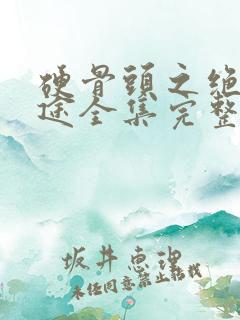 硬骨頭之绝
途全集完整
坂井恵理
未经同意禁止转载